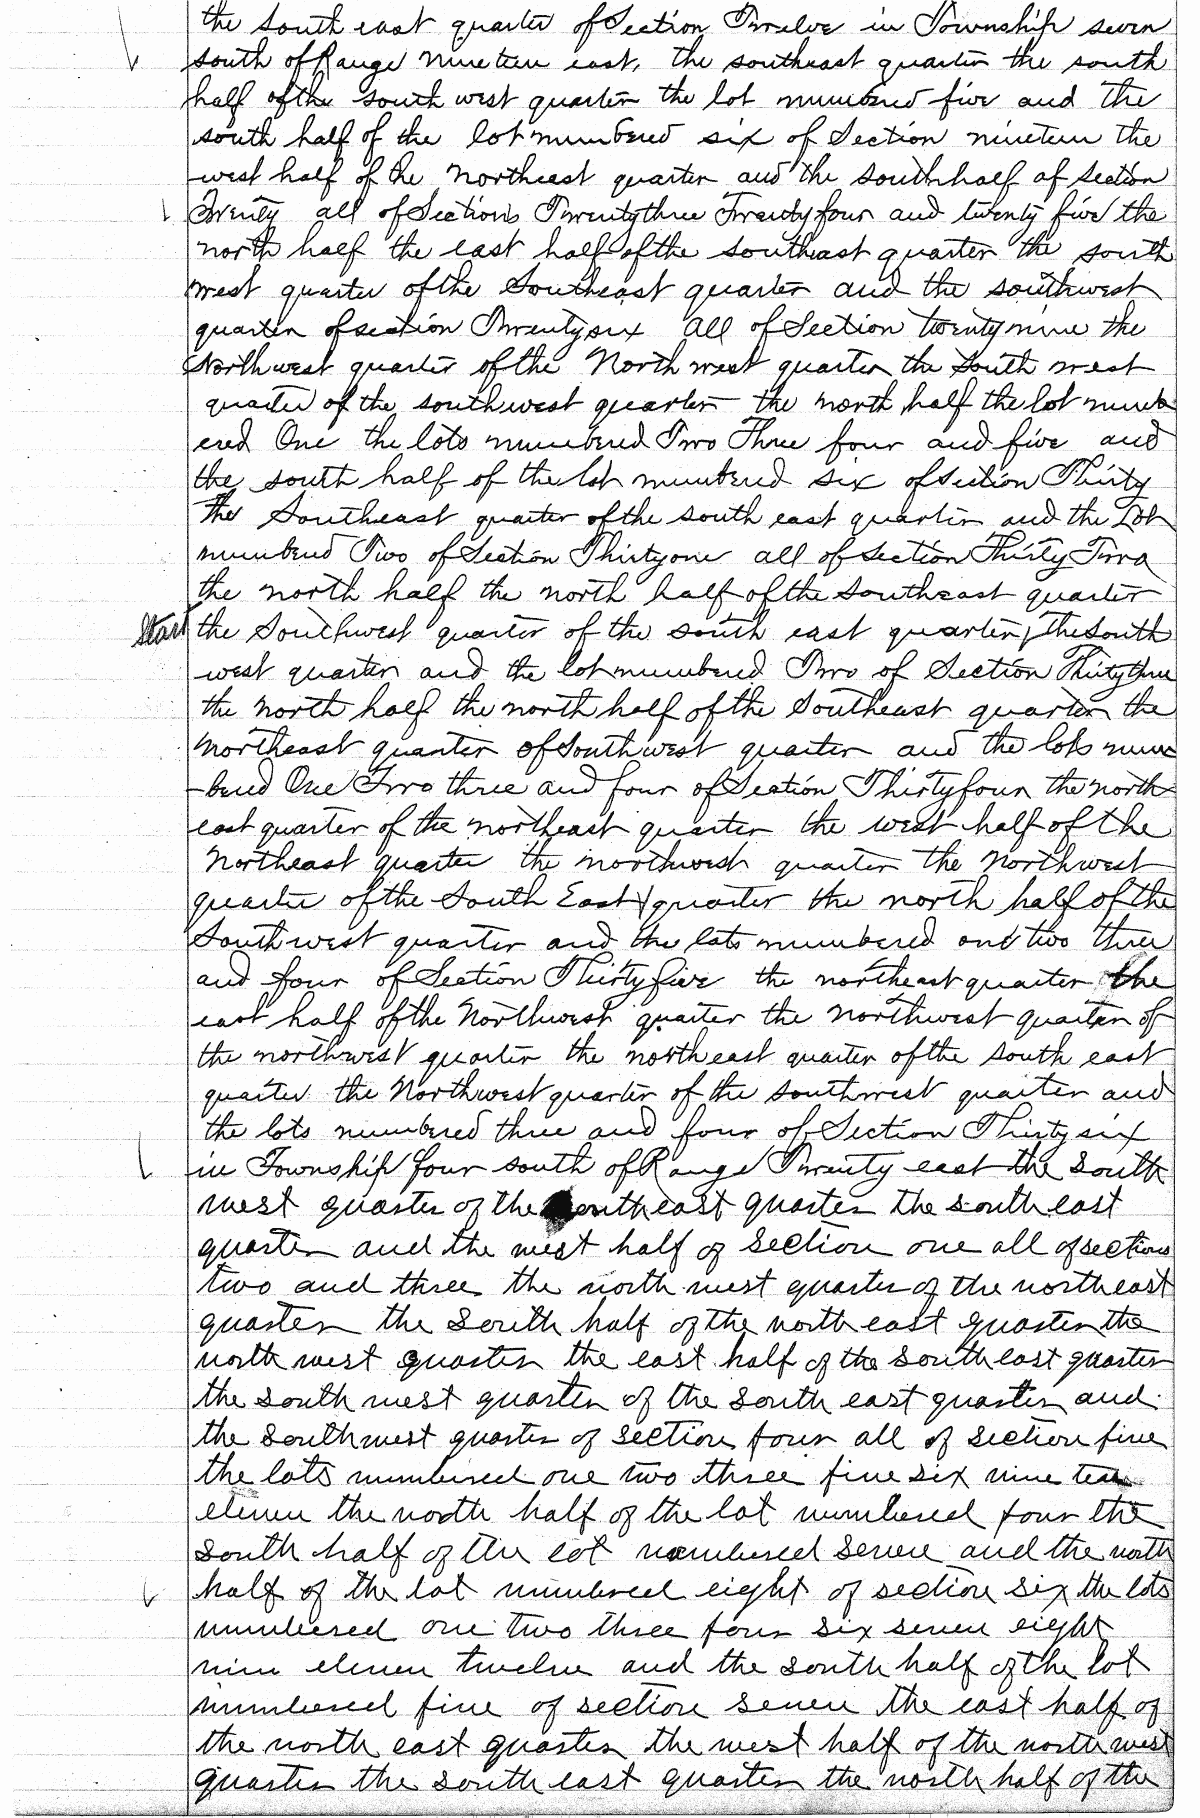 the south east quarter of Section Twelve in Township seven
south of Range nineteen east, the southeast quarter the south
half of the south west quarter the lot numbered five and the
south half of the lot numbered six of Section nineteen the
west half of the Northeast quarter and the south half of section
Twenty all of Sections Twentythree Twentyfour and twenty five the
north half the east half of the southeast quarter the south
west quarter of the Southeast quarter and the southwest
quarter of section Twentysix all of Section twentynine the
Northwest quarter of the North west quarter the South west
quarter of the southwest quarter the north half the lot numb
ered One the lots numbered Two Three four and five and
the south half of the lot numbered six of Section Thirty
the Southeast quarter of the south east quarter and the Lot
numbered Two of Section Thirtyone all of section Thirty Two
the north half the north half of the Southeast quarter
Start the Southwest quarter of the south east quarter, the South
west quarter and the lot numbered Two of Section Thirtythree
the north half the north half of the Southeast quarter the
northeast quarter of Southwest quarter and the lots num
-bered One Two three and four of Section Thirtyfour the north
east quarter of the northeast quarter the west half of the
Northeast quarter the northwest quarter the Northwest
quarter of the South East quarter the north half of the
Southwest quarter and the lots numbered one two three
and four of Section Thirtyfive the northeast quarter the
east half of the Northwest quarter the Northwest quarter of
the northwest quarter the northeast quarter of the south east
quarter the Northwest quarter of the southwest quarter and
the lots numbered three and four of Section Thirtysix
in Township four south of Range Twenty east the south
west quarter of the southeast quarter the south east
quarter and the west half of section one all of sections
two and three the north west quarter of the northeast
quarter the south half of the north east quarter the
north west quarter the east half of the south east quarter
the south west quarter of the south east quarter and
the southwest quarter of section four all of section five
the lots numbered one two three five six nine ten
eleven the north half of the lot numbered four the
south half of the lot numbered seven and the north
half of the lot numbered eight of section six the lots
numbered one two three four six seven eight
nine eleven twelve and the south half of the lot
numbered five of section seven the east half of
the north east quarter the west half of the north west
quarter the south east quarter the north half of the